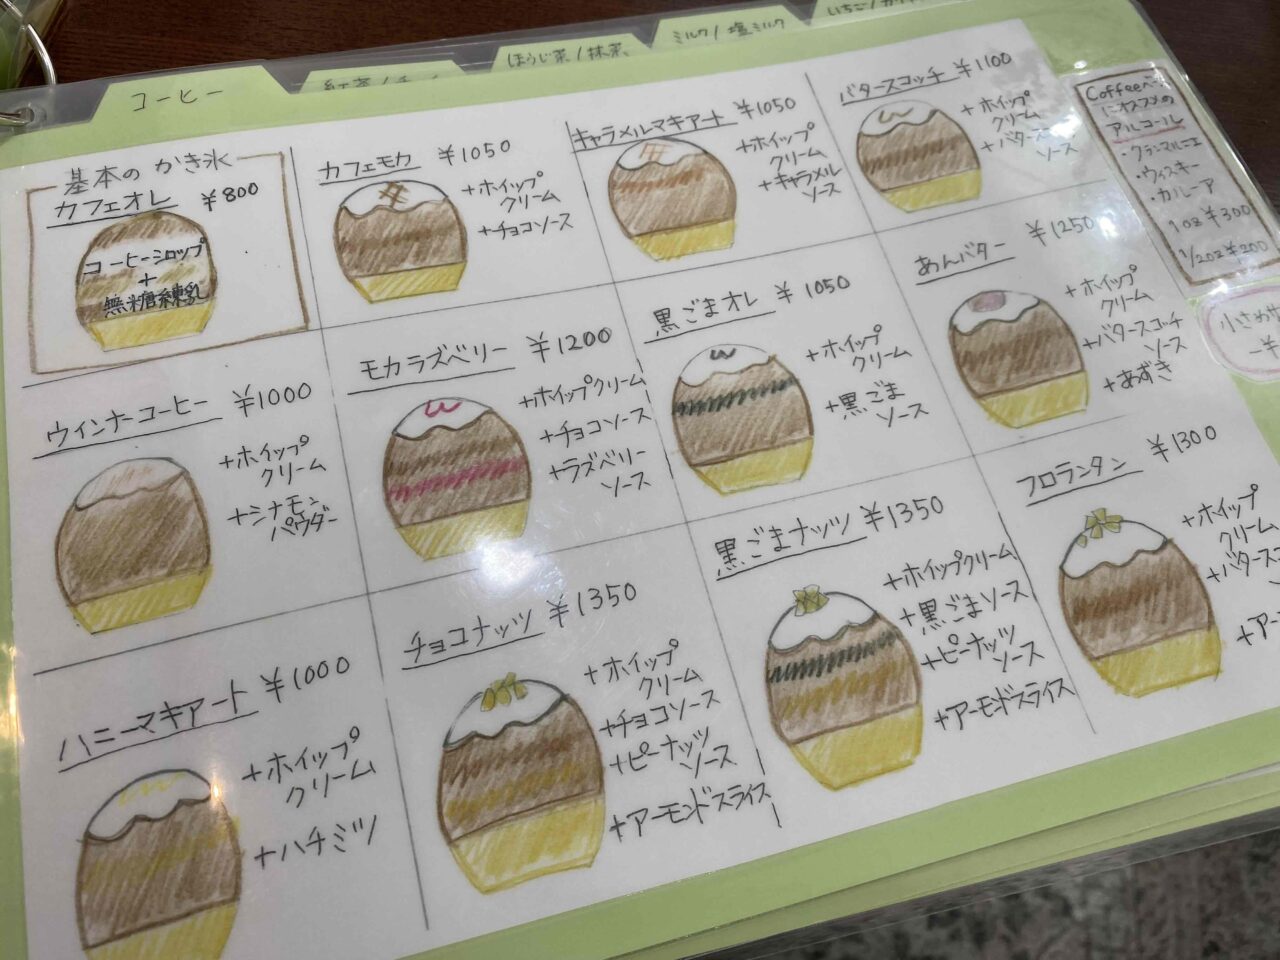 コーヒー
紅茶/チャイ
ほうじ茶/抹茶
ミルク/塩ミルク
いちご/
基本のかき氷
カフェオレ ¥800
コーヒーシロップ
+
無糖練乳
カフェモカ ¥1050
+ホイップ
クリーム
+チョコソース
キャラメルマキアート ¥1050
+ホイップ
クリーム
+キャラメル
ソース
バタースコッチ ¥1100
+ホイップ
クリーム
+バタースコッチ
ソース
ウィンナーコーヒー ¥1000
+ホイップ
クリーム
+シナモン
パウダー
モカラズベリー ¥1200
+ホイップクリーム
+チョコソース
+ラズベリー
ソース
黒ごまオレ ¥1050
+ホイップ
クリーム
+黒ごま
ソース
あんバター ¥1250
+ホイップ
クリーム
+バタースコッチ
ソース
+あずき
ハニーマキアート ¥1000
+ホイップ
クリーム
+ハチミツ
チョコナッツ ¥1350
+ホイップ
クリーム
+チョコソース
+ピーナッツ
ソース
+アーモンドスライス
黒ごまナッツ ¥1350
+ホイップクリーム
+黒ごまソース
+ピーナッツ
ソース
+アーモンドスライス
フロランタン ¥1300
+ホイップ
クリーム
+バタースコ
+アー
Coffeeベース
にオススメの
アルコール
・グランマルニエ
・ウィスキー
・カルーア
1oz ¥300
1/2oz ¥200
小さめサ